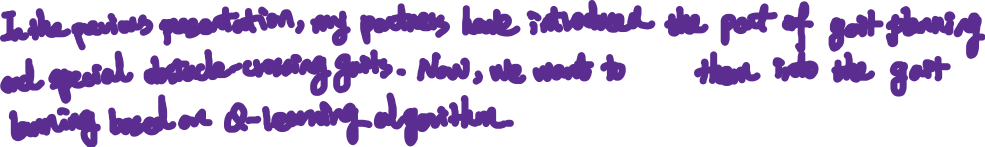 In the previous presentation, my partners have introduced the part of gait planning
and special obstacle-crossing gaits. Now, we want to them into the gait
learning based on Q-learning algorithm.